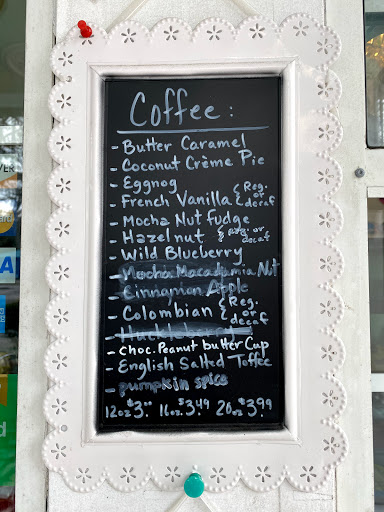 Coffee:
- Butter Caramel
- Coconut Crème Pie
- Eggnog
- French Vanilla { Reg. or decaf
- Mocha Nut Fudge
- Hazelnut { Reg. or decaf
- Wild Blueberry
- Mocha Macadamia Nut
- Cinnamon Apple
- Colombian { Reg. or decaf
- Huckleberry
- Choc. Peanut butter Cup
- English Salted Toffee
- pumpkin spice
12oz $3.00 16oz $3.49 20oz $3.99